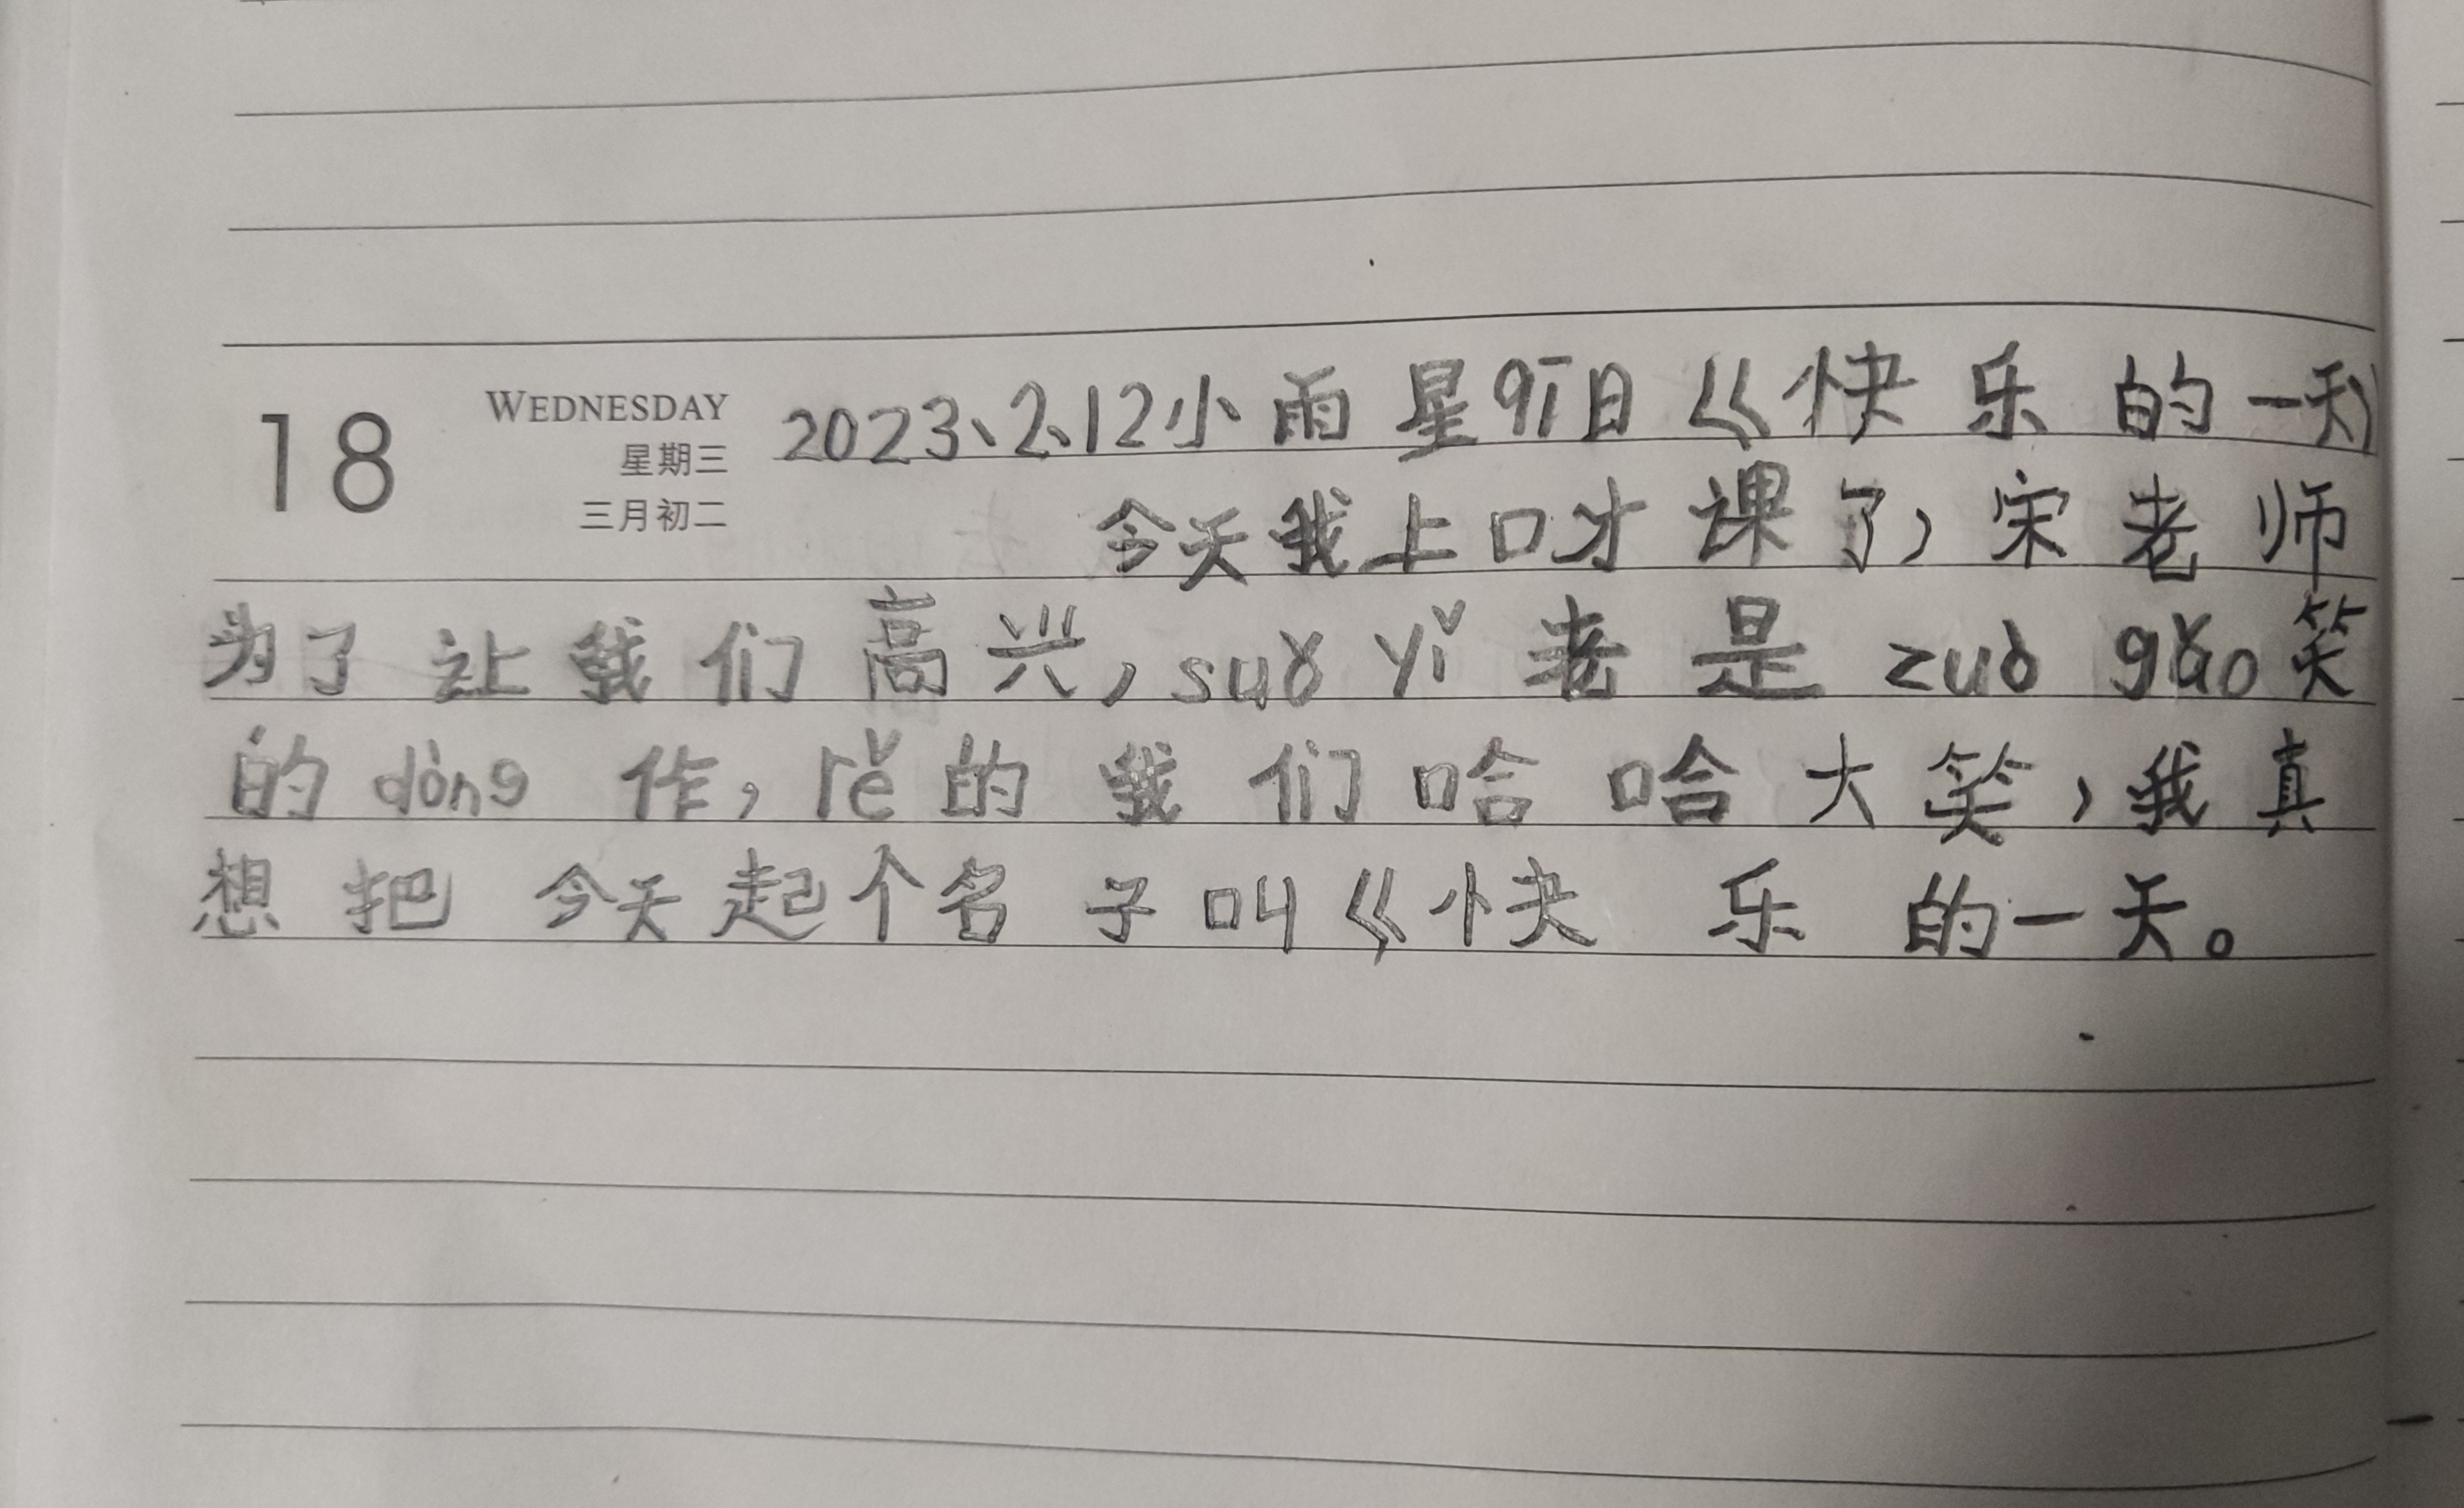 18 WEDNESDAY 2023、2、12小雨星qī日《快乐的一天》
星期三
三月初二
今天我上口才课了，宋老师
为了让我们高兴，suǒ yǐ 老是 zuò gǎo 笑
的 dòng 作，rě 的我们哈哈大笑，我真
想把今天起个名子叫《快乐的一天。